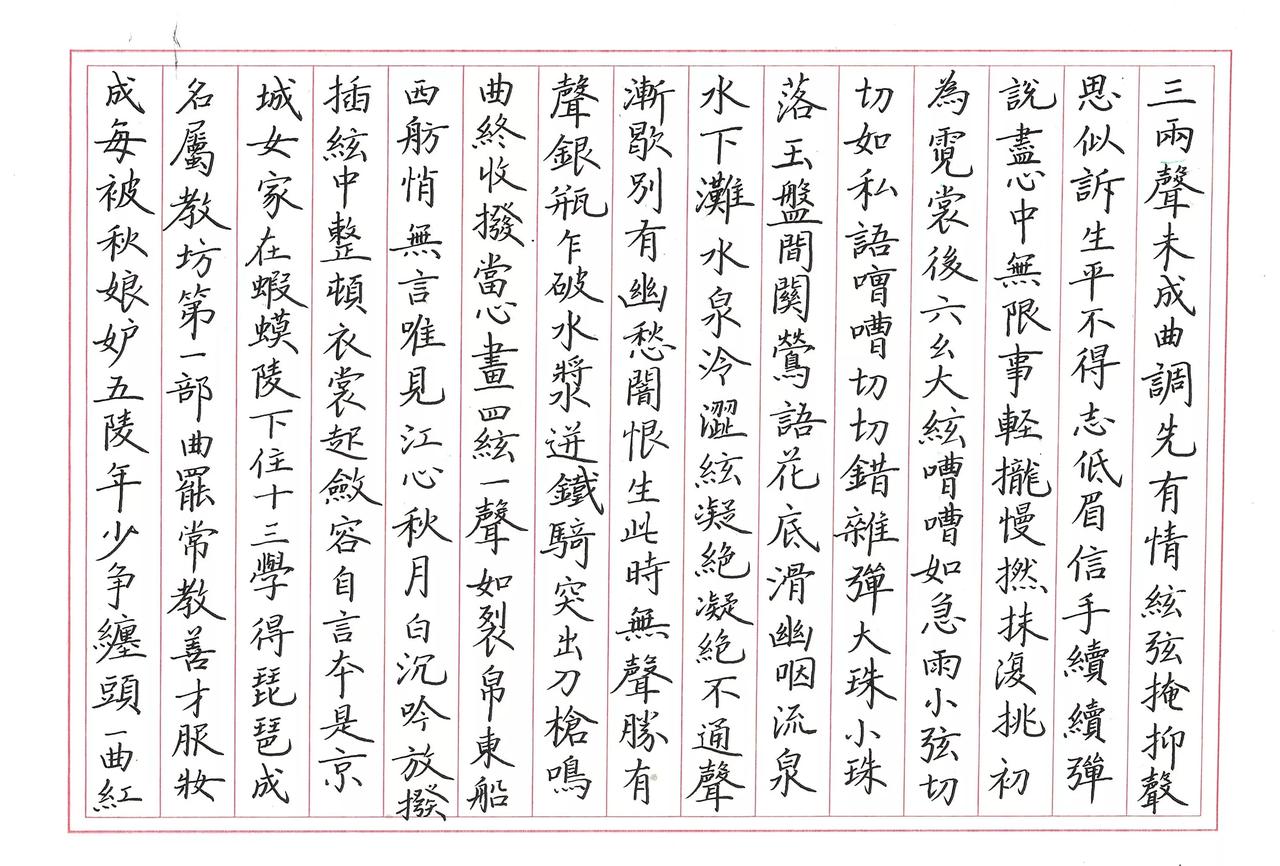 三兩聲未成曲調先有情絃弦掩抑聲聲
思似訴生平不得志低眉信手續續彈
說盡心中無限事軽攏慢撚抹復挑初
為霓裳後六幺大絃嘈嘈如急雨小弦切
切如私語嘈嘈切切錯雜彈大珠小珠
落玉盤間關鶯語花底滑幽咽流泉
水下灘水泉冷澀絃凝絶凝絶不通聲
漸歇別有幽愁闇恨生此時無聲勝有
聲銀瓶乍破水漿迸鐵騎突出刀槍鳴
曲終收撥當心畫四絃一聲如裂帛東船
西舫悄無言唯見江心秋月白沉吟放撥
插絃中整頓衣裳起斂容自言本是京
城女家在蝦蟆陵下住十三學得琵琶成
名屬教坊第一部曲罷常教善才服妝
成每被秋娘妒五陵年少争纏頭一曲紅